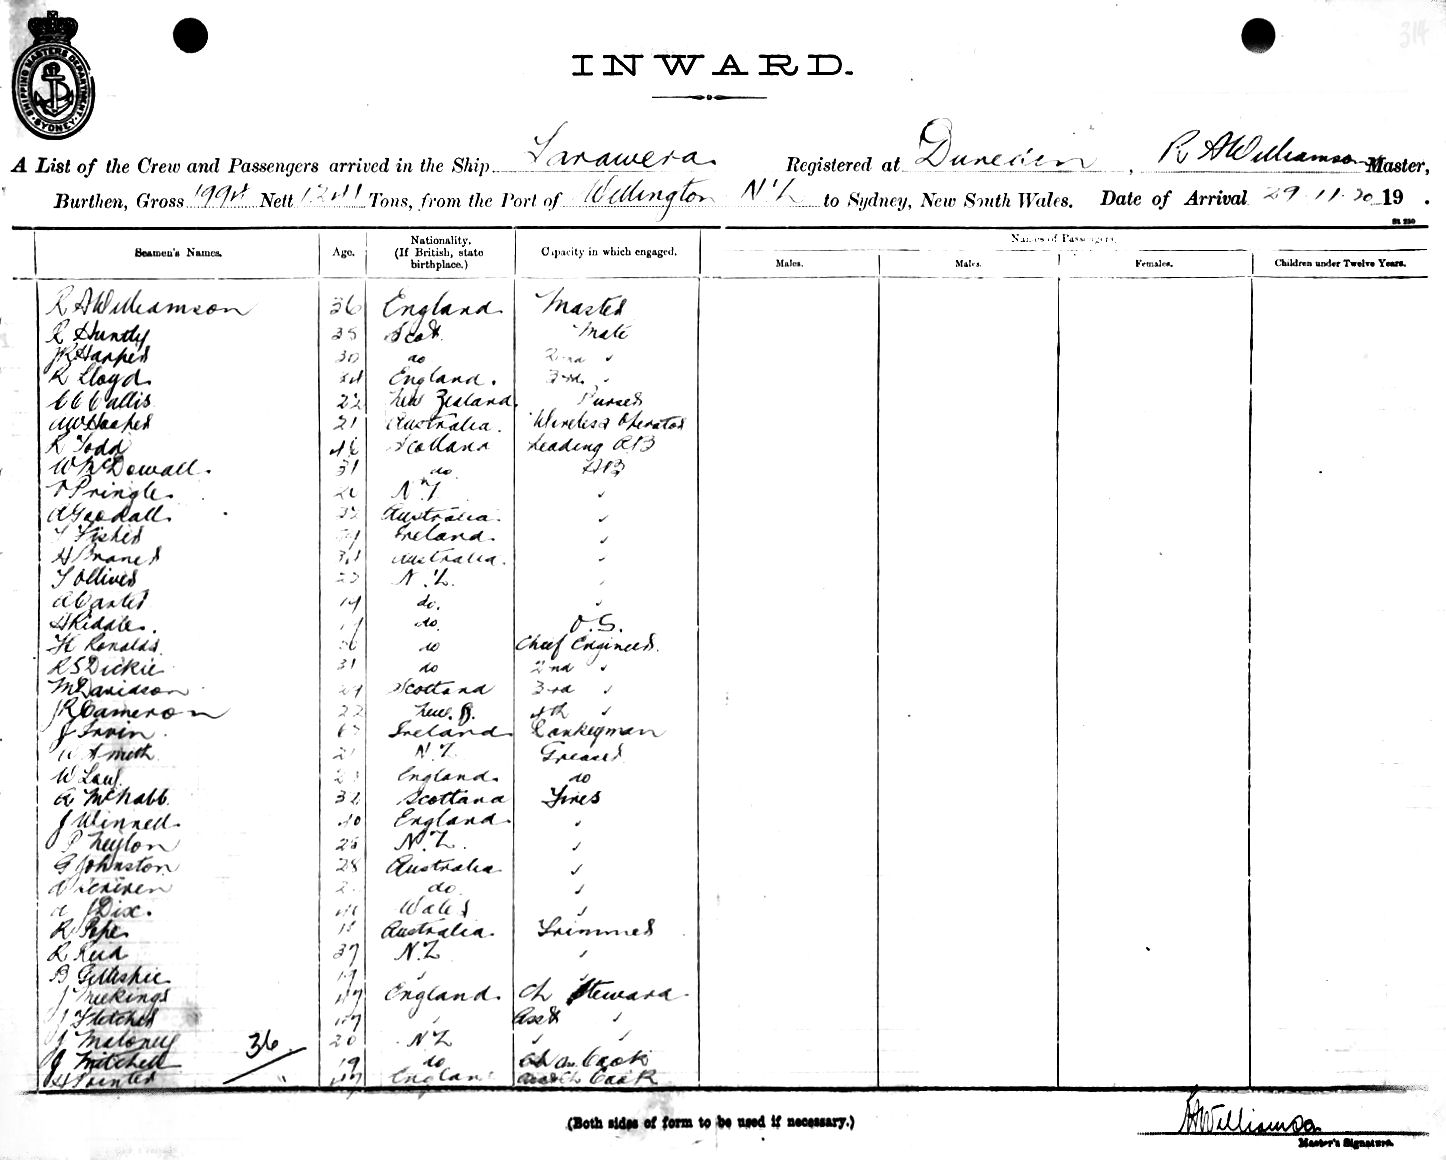 314
SHIPPING MASTERS DEPARTMENT
SYDNEY
INWARD.
A List of the Crew and Passengers arrived in the Ship Tarawera Registered at Dunedin, R A Williamson Master,
Burthen, Gross 1994 Nett 1241 Tons, from the Port of Wellington N Z to Sydney, New South Wales. Date of Arrival 29.11.20 19 .
Seamen's Names. Age. Nationality. (If British, state birthplace.) Capacity in which engaged. Names of Passengers.
Males. Males. Females. Children under Twelve Years.
R A Williamson 36 England Master
R Huntly 38 Scot. Mate
J R Harper 30 do 2nd "
R Lloyd England. 3rd "
C C Callis 22 New Zealand. Purser
A W Hooper 21 Australia. Wireless Operator
R Todd Scotland Leading AB
W McDowall. 31 do AB
Pringle. N.Z "
A Goodall. Australia. "
T Fisher Ireland. "
H Australia. "
T Olliver N.Z. "
A Carter 19 do. "
H Riddle. do. O.S.
H Ronalds do Chief Engineer.
R S Dickie 31 do 2nd "
M Davidson 29 Scotland 3rd "
J R Cameron 22 New. Z. 4th "
J Irvin Ireland Donkeyman
W Smith 21 N.Z. Greaser
W Law. 23 England. do
A McNabb. 32 Scotland Fires
J Winnell. 40 England. "
P Neylon 28 N.Z. "
G Johnston 28 Australia "
A Scriven do. "
A J Dix. Wales "
R Pope Australia. Trimmer
R Reid 37 N.Z "
B Gillespie 19 " "
J Meekings 47 England. Ch Steward
J Fletcher 47 " Asst "
J Maloney 20 N Z " "
36
J Mitchell 19 do Cook
H Painter 47 England Cook
(Both sides of form to be used if necessary.)
R A Williamson
Master's Signature.